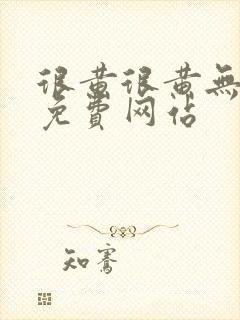 很黄很黄無
免費网佔
知騫